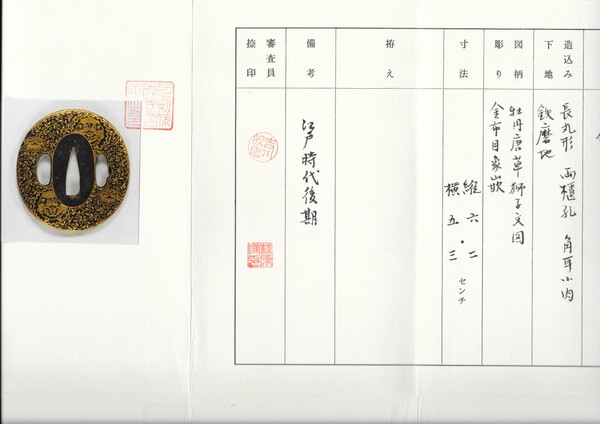 造込み
下地
長丸形 両櫃孔 角耳小肉
鉄磨地
図柄
彫り
牡丹唐草獅子文図
金布目象嵌
寸法
縦 六・二
横 五・三 センチ
拵え
備考
江戸時代後期
審査員
捺印